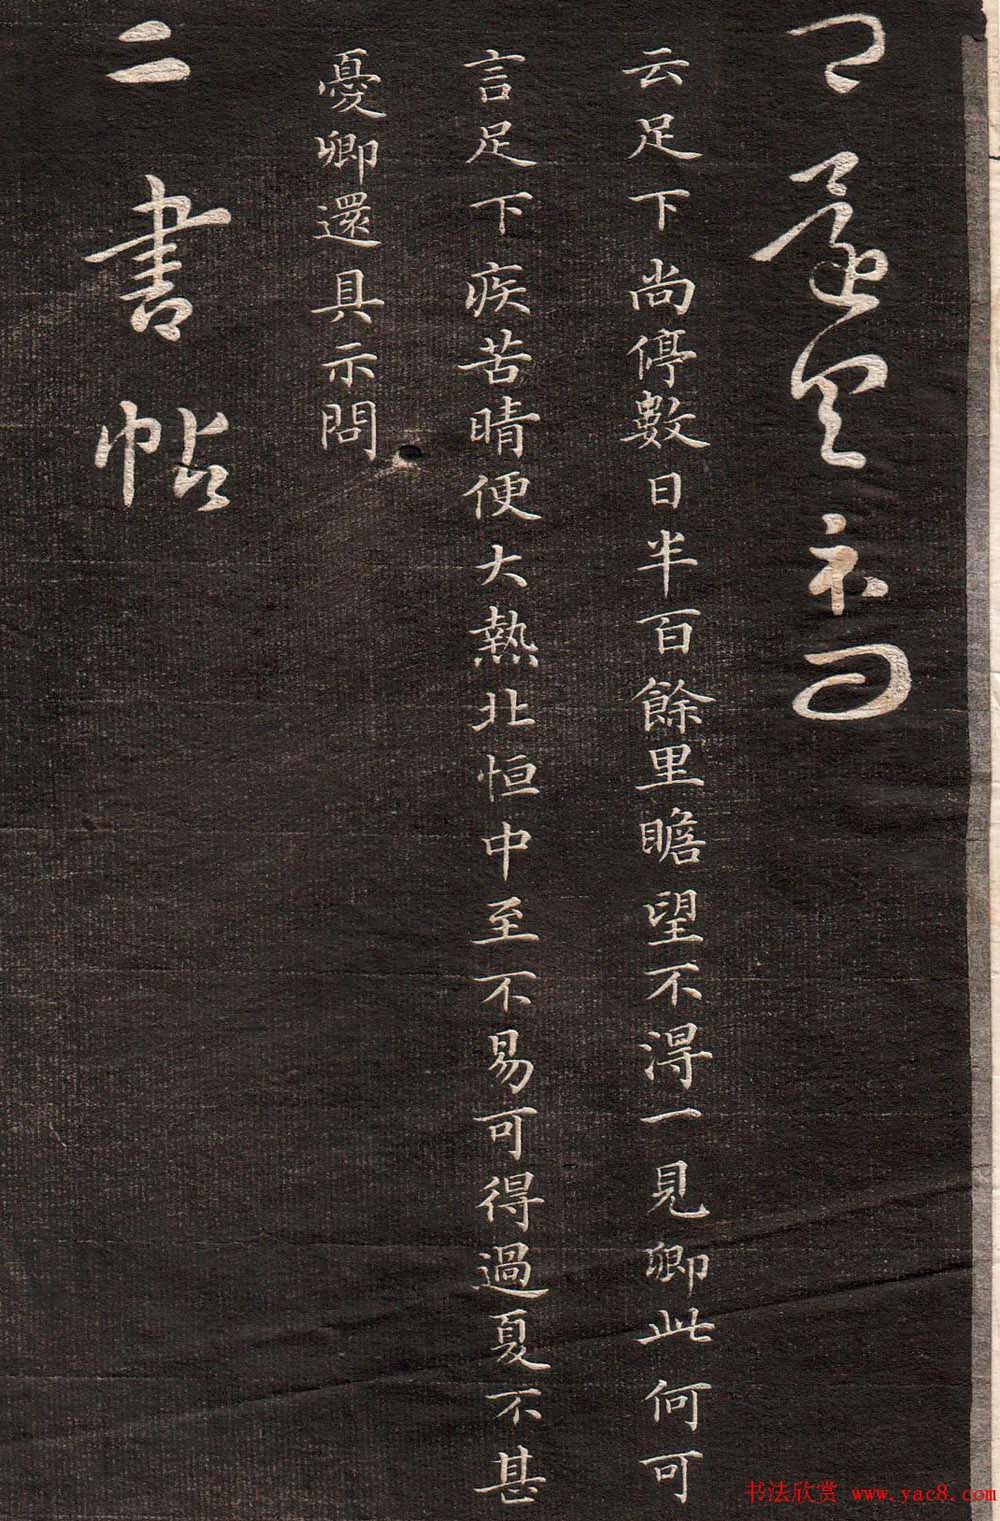 卿還具示問
云足下尚停數日半百餘里瞻望不淂一見卿此何可
言足下疾苦晴便大熱北恒中至不易可得過夏不甚
憂卿還具示問
二書帖
书法欣赏 www.yac8.com